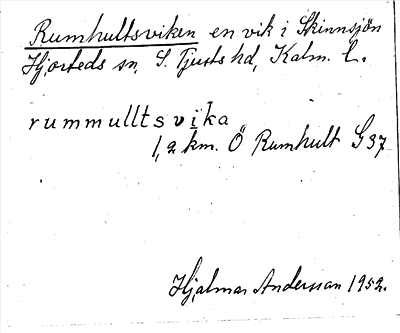 Rumhultsviken en vik i Skinnsjön
Hjorteds sn, S. Tjusts hd, Kalm. L.
rummulltsvika
1,2 km. Ö Rumhult G37
Hjalmar Andersson 1952.